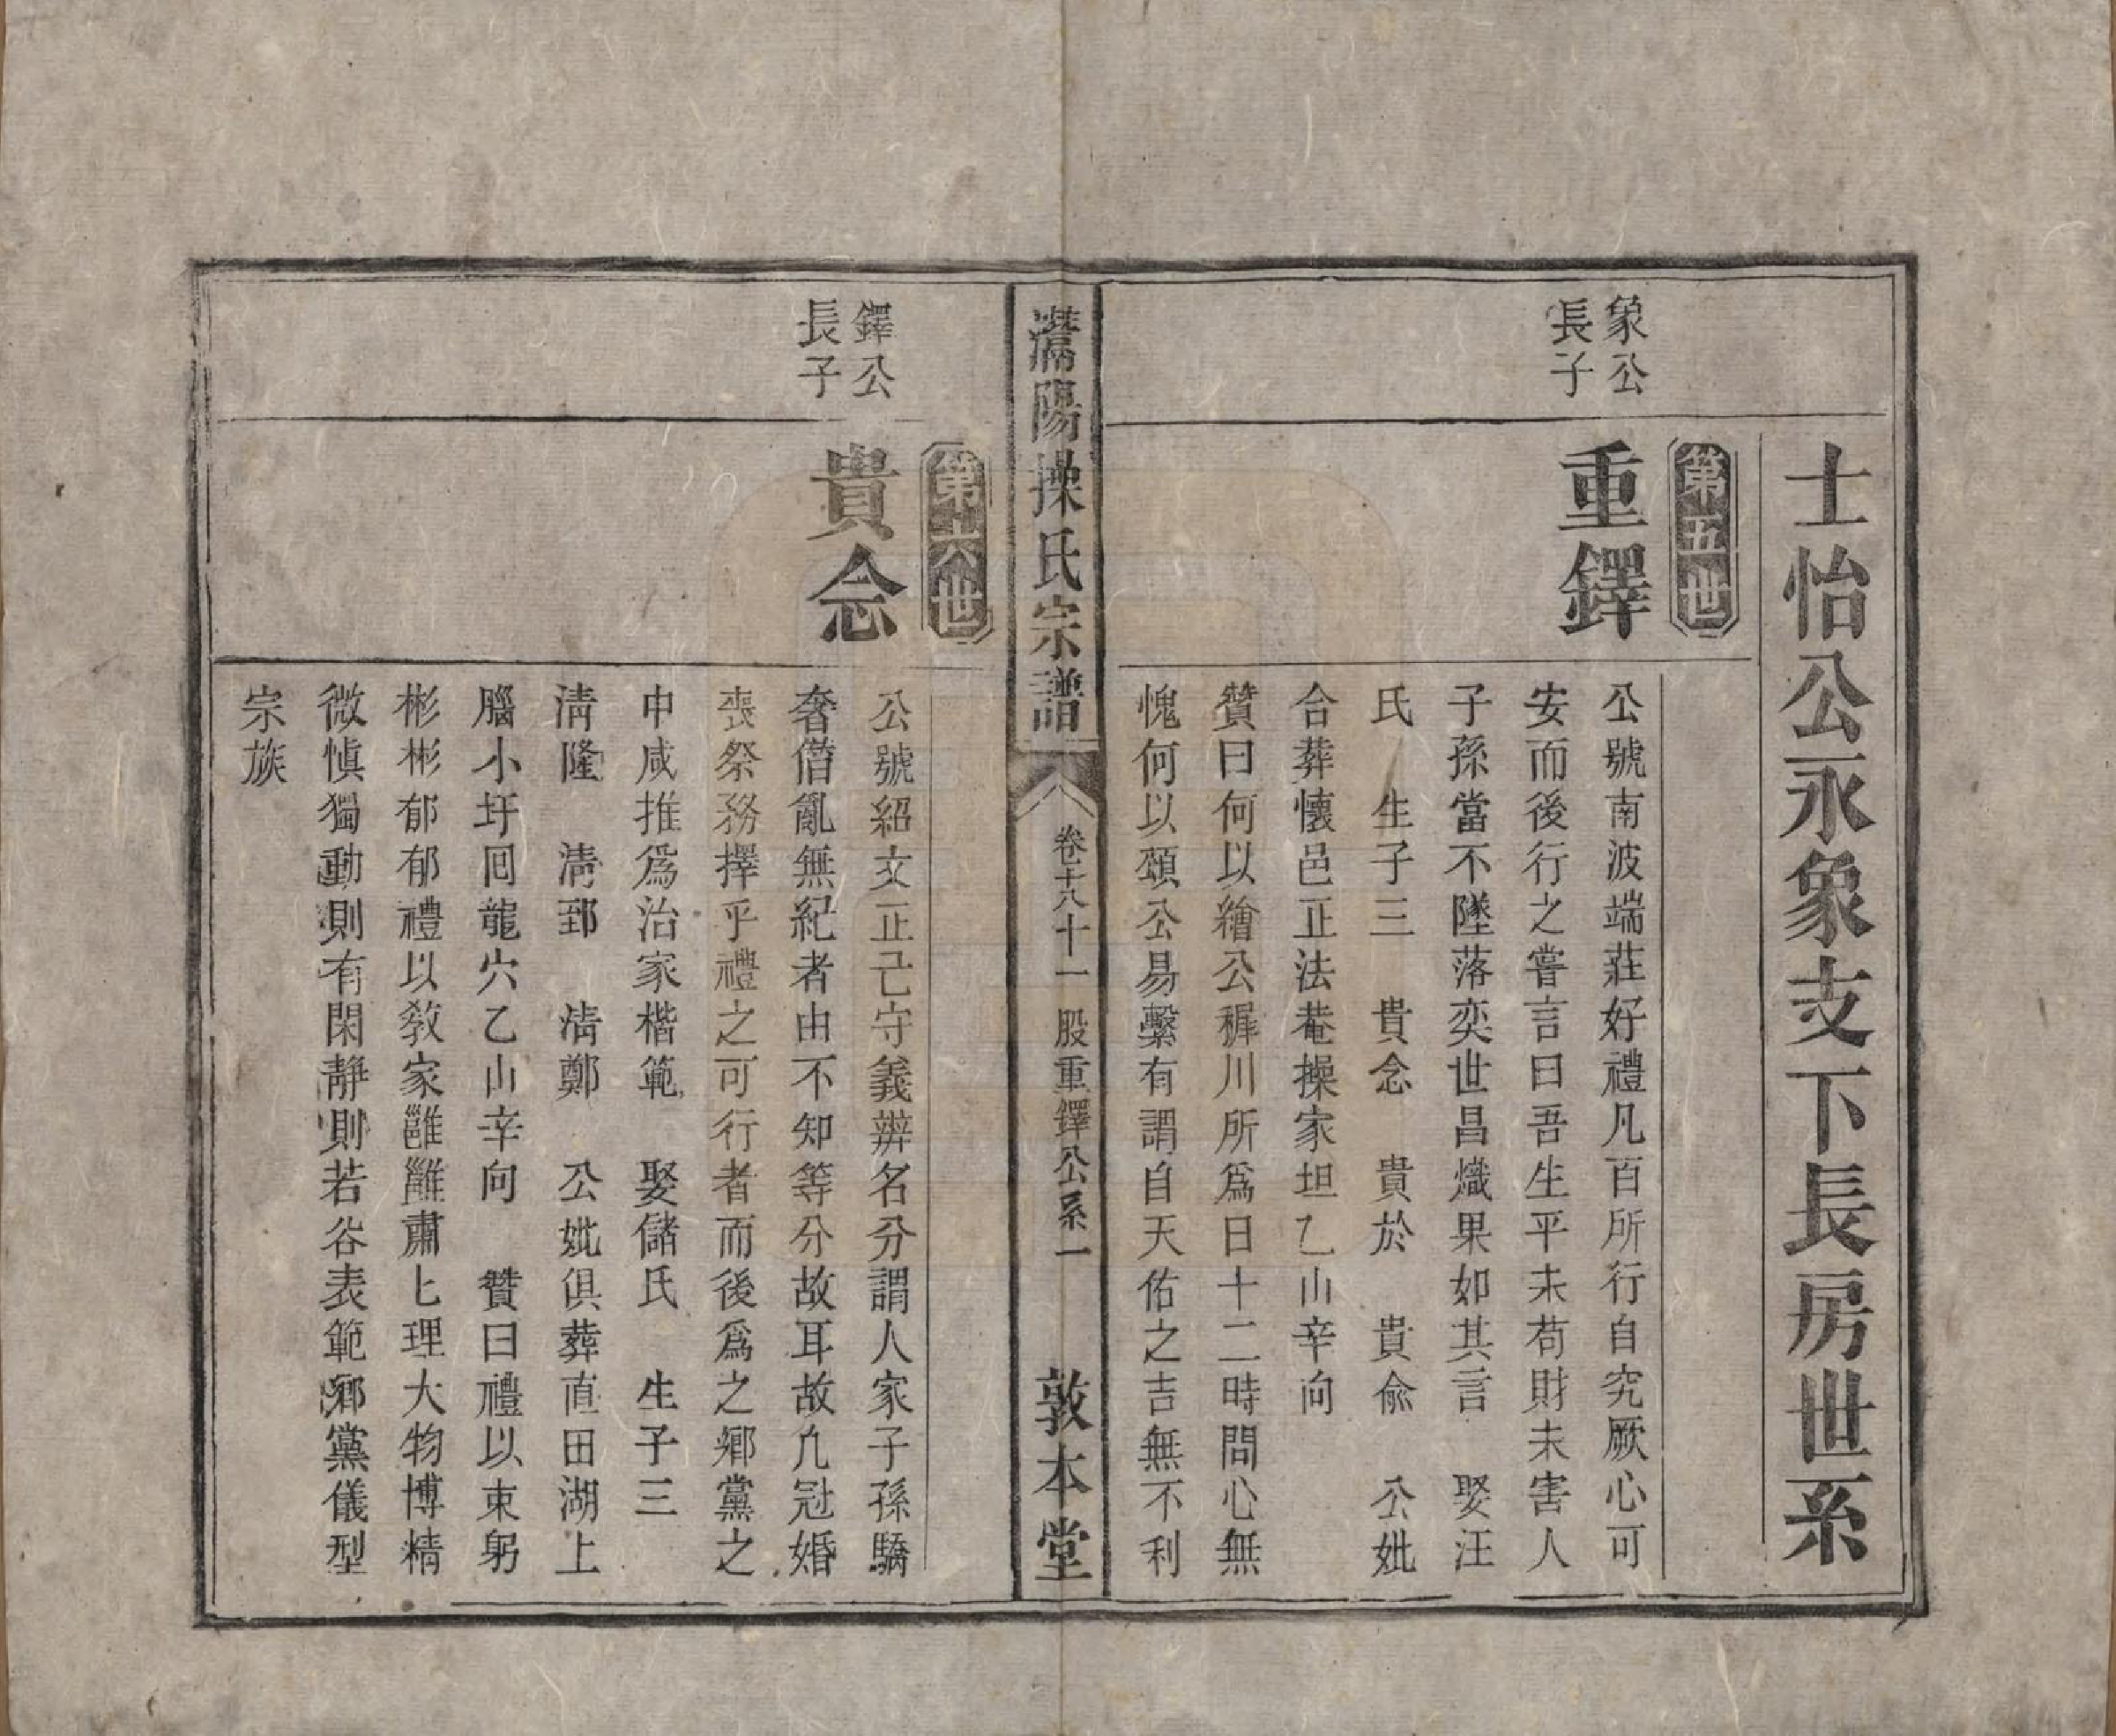 士怡公永象支下長房世系
第五世
象公
長子
重鐸
公號南波端莊好禮凡百所行自究厥心可
安而後行之嘗言曰吾生平未苟財未害人
子孫當不墜落奕世昌熾果如其言　娶汪
氏　生子三　貴念　貴於　貴兪　公妣
合葬懷邑正法菴操家坦乙山辛向
贊曰何以繪公穉川所爲日十二時問心無
愧何以頌公易繫有謂自天佑之吉無不利
陽操氏宗譜
卷十八　十一股重鐸公系一
敦本堂
第六世
鐸公
長子
貴念
公號紹文正己守義辨名分謂人家子孫驕
奢僭亂無紀者由不知等分故耳故凢冠婚
喪祭務擇乎禮之可行者而後爲之鄉黨之
中咸推爲治家楷範　娶儲氏　生子三
淸隆　淸郅　淸鄭　公妣俱葬直田湖上
腦小圩囘龍穴乙山辛向　贊曰禮以束躬
彬彬郁郁禮以敎家雝雝肅七理大物博精
微愼獨動則有閑靜則若谷表範鄉黨儀型
宗族